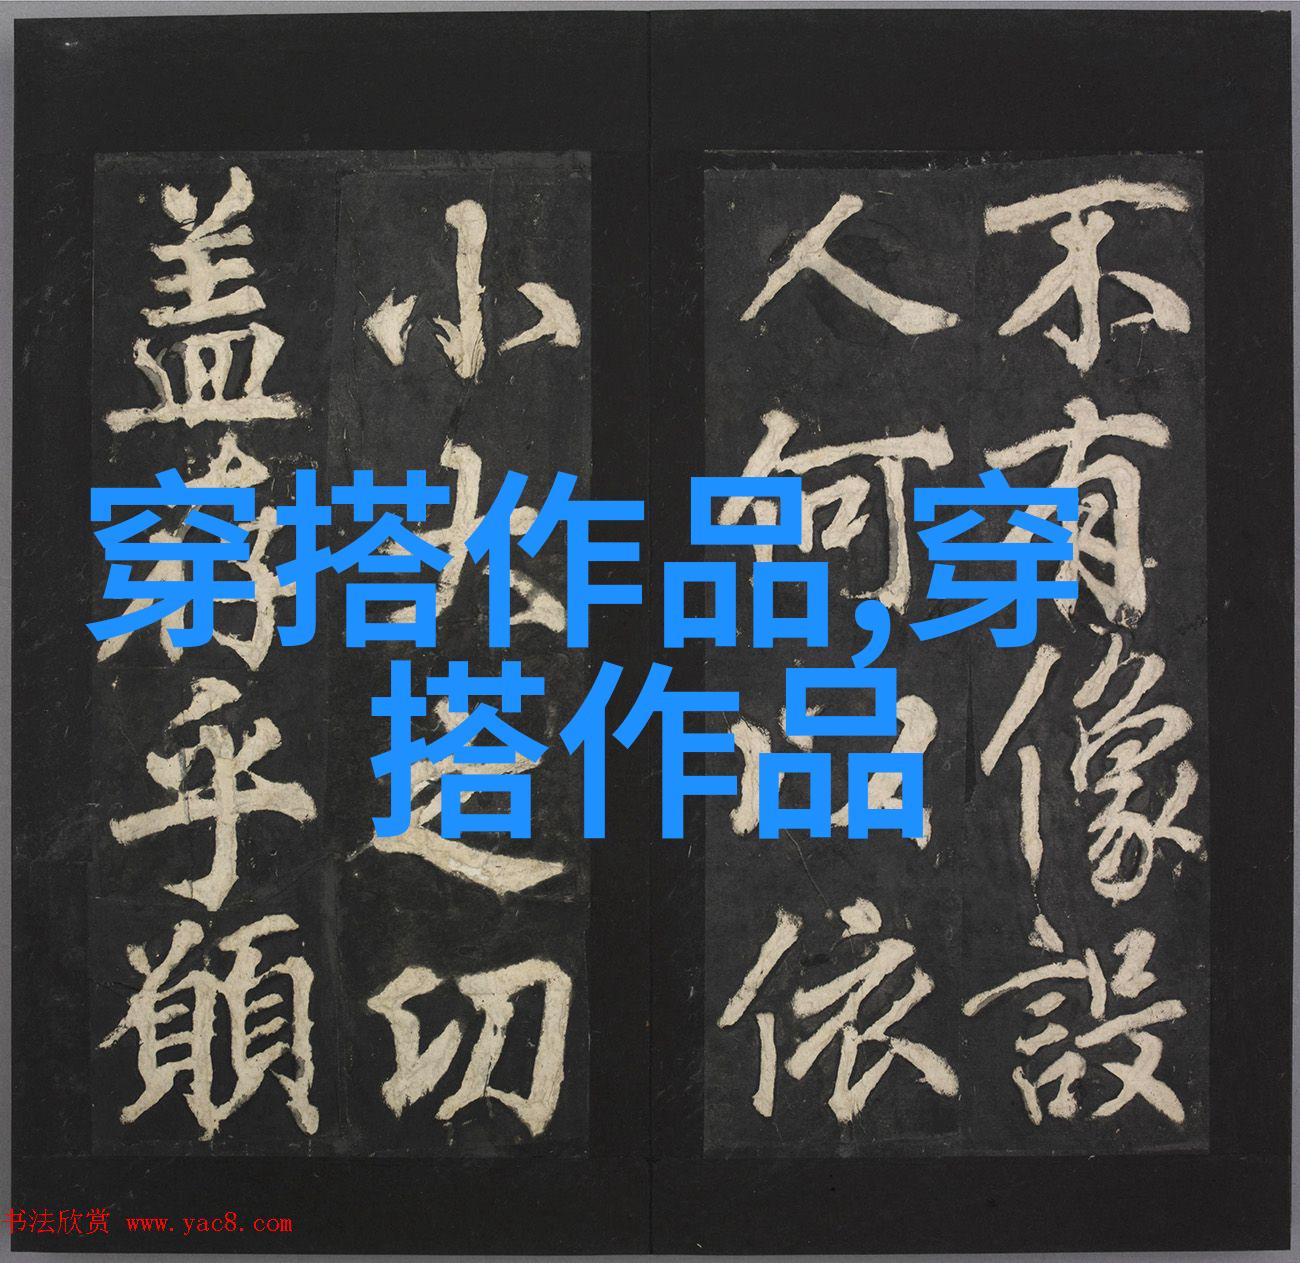 不有像設
人何以依
小大之切
盖存乎願
穿搭作品,穿
搭作品
书法欣赏 www.yac8.com